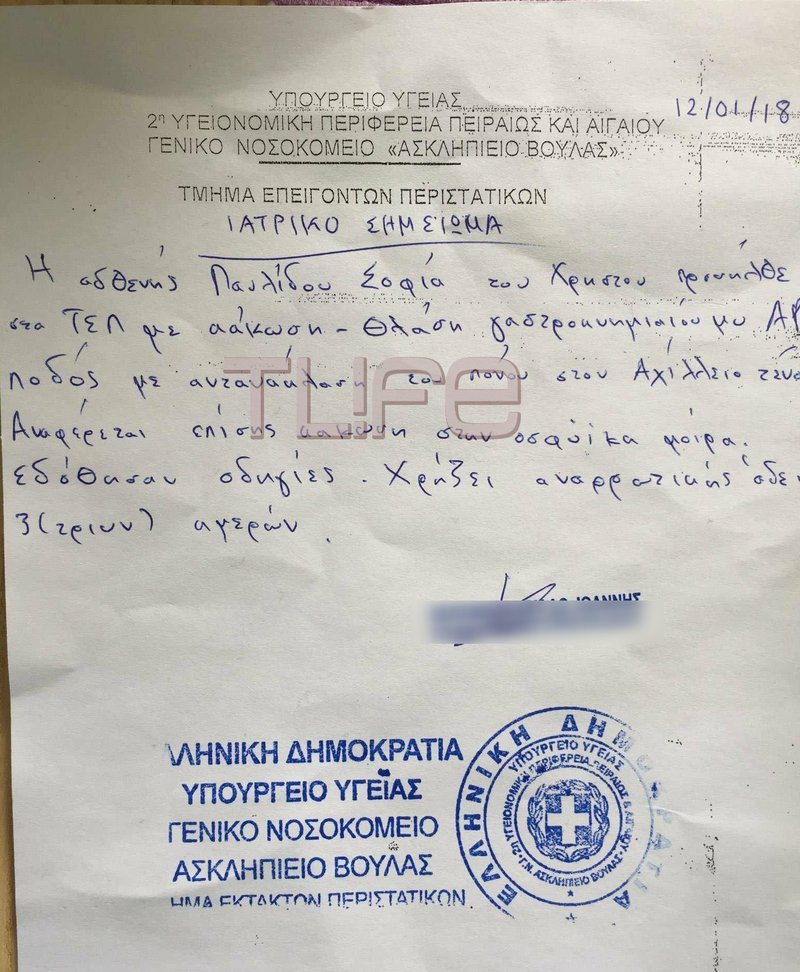 ΥΠΟΥΡΓΕΙΟ ΥΓΕΙΑΣ
12/01/18
2η ΥΓΕΙΟΝΟΜΙΚΗ ΠΕΡΙΦΕΡΕΙΑ ΠΕΙΡΑΙΩΣ ΚΑΙ ΑΙΓΑΙΟΥ
ΓΕΝΙΚΟ ΝΟΣΟΚΟΜΕΙΟ «ΑΣΚΛΗΠΙΕΙΟ ΒΟΥΛΑΣ»
ΤΜΗΜΑ ΕΠΕΙΓΟΝΤΩΝ ΠΕΡΙΣΤΑΤΙΚΩΝ
ΙΑΤΡΙΚΟ ΣΗΜΕΙΩΜΑ
Η ασθενής Παυλίδου Σοφία του Χρήστου προσήλθε
στα ΤΕΠ με κάκωση - θλάση γαστροκνημιαίου μυ ΑΡ
ποδός με αντανάκλαση του πόνου στον Αχίλλειο τένο
Αναφέρεται επίσης κάκωση στην οσφυϊκή μοίρα.
Εδόθησαν οδηγίες. Χρήζει αναρρωτικής άδει
3 (τριών) ημερών
TLIFE
ΙΩΑΝΝΗΣ
ΛΗΝΙΚΗ ΔΗΜΟΚΡΑΤΙΑ
ΥΠΟΥΡΓΕΙΟ ΥΓΕΙΑΣ
ΓΕΝΙΚΟ ΝΟΣΟΚΟΜΕΙΟ
ΑΣΚΛΗΠΙΕΙΟ ΒΟΥΛΑΣ
ΗΜΑ ΕΚΤΑΚΤΩΝ ΠΕΡΙΣΤΑΤΙΚΩΝ
ΕΛΛΗΝΙΚΗ ΔΗΜΟΚΡΑΤΙΑ
ΥΠΟΥΡΓΕΙΟ ΥΓΕΙΑΣ
2η ΥΓΕΙΟΝΟΜΙΚΗ ΠΕΡΙΦΕΡΕΙΑ ΠΕΙΡΑΙΩΣ & ΑΙΓΑΙΟΥ
Γ.Ν. ΑΣΚΛΗΠΙΕΙΟ ΒΟΥΛΑΣ